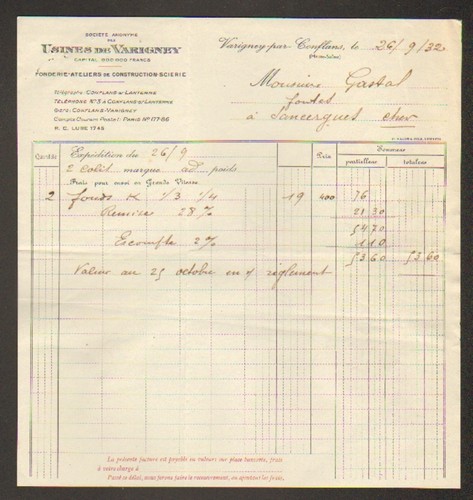 SOCIÉTÉ ANONYME
DES
USINES DE VARIGNEY
CAPITAL 900.000 FRANCS
FONDERIE-ATELIERS DE CONSTRUCTION-SCIERIE
Télégraphe: CONFLANS s/ LANTERNE
TÉLÉPHONE N° 3 à CONFLANS s/ LANTERNE
Gare: CONFLANS-VARIGNEY
Compte Courant Postal: PARIS N° 177-86
R. C. LURE 1745
Varigney-par-Conflans, le 26/9/32
(Haute-Saône)
Monsieur Gastal
fontes
à Sancergues Cher
Quantité
Prix
Sommes
partielles
totales
Expédition du 26/9
2 colis marque ad poids
Frais pour mont en Grande Vitesse
2 fonds K 1/3 1/4 19 400 76
Remise 28 % 21 30
54 70
Escompte 2 % 1 10
53 60 53 60
Valeur au 25 octobre en règlement
La présente facture est payable en valeurs sur place bancable, frais
à votre charge à
Passé ce délai, nous ferons faire le recouvrement, en ajoutant les frais.